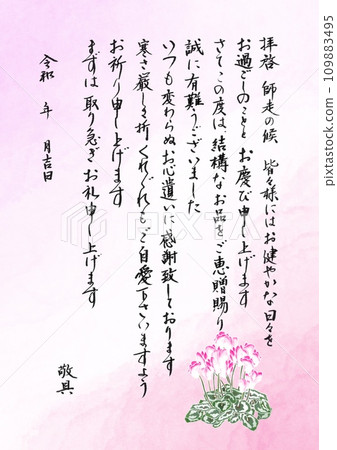 拝啓 師走の候 皆々様にはお健やかな日々を
お過ごしのことと お慶び申し上げます
さてこの度は、結構なお品をご恵贈賜り
誠に有難うございました
いつも変わらぬお心遣いに感謝致しております
寒さ厳しき折 くれぐれもご自愛下さいますよう
お祈り申し上げます
まずは取り急ぎお礼申し上げます
敬具
令和 年 月吉日
PIXTA
109883495